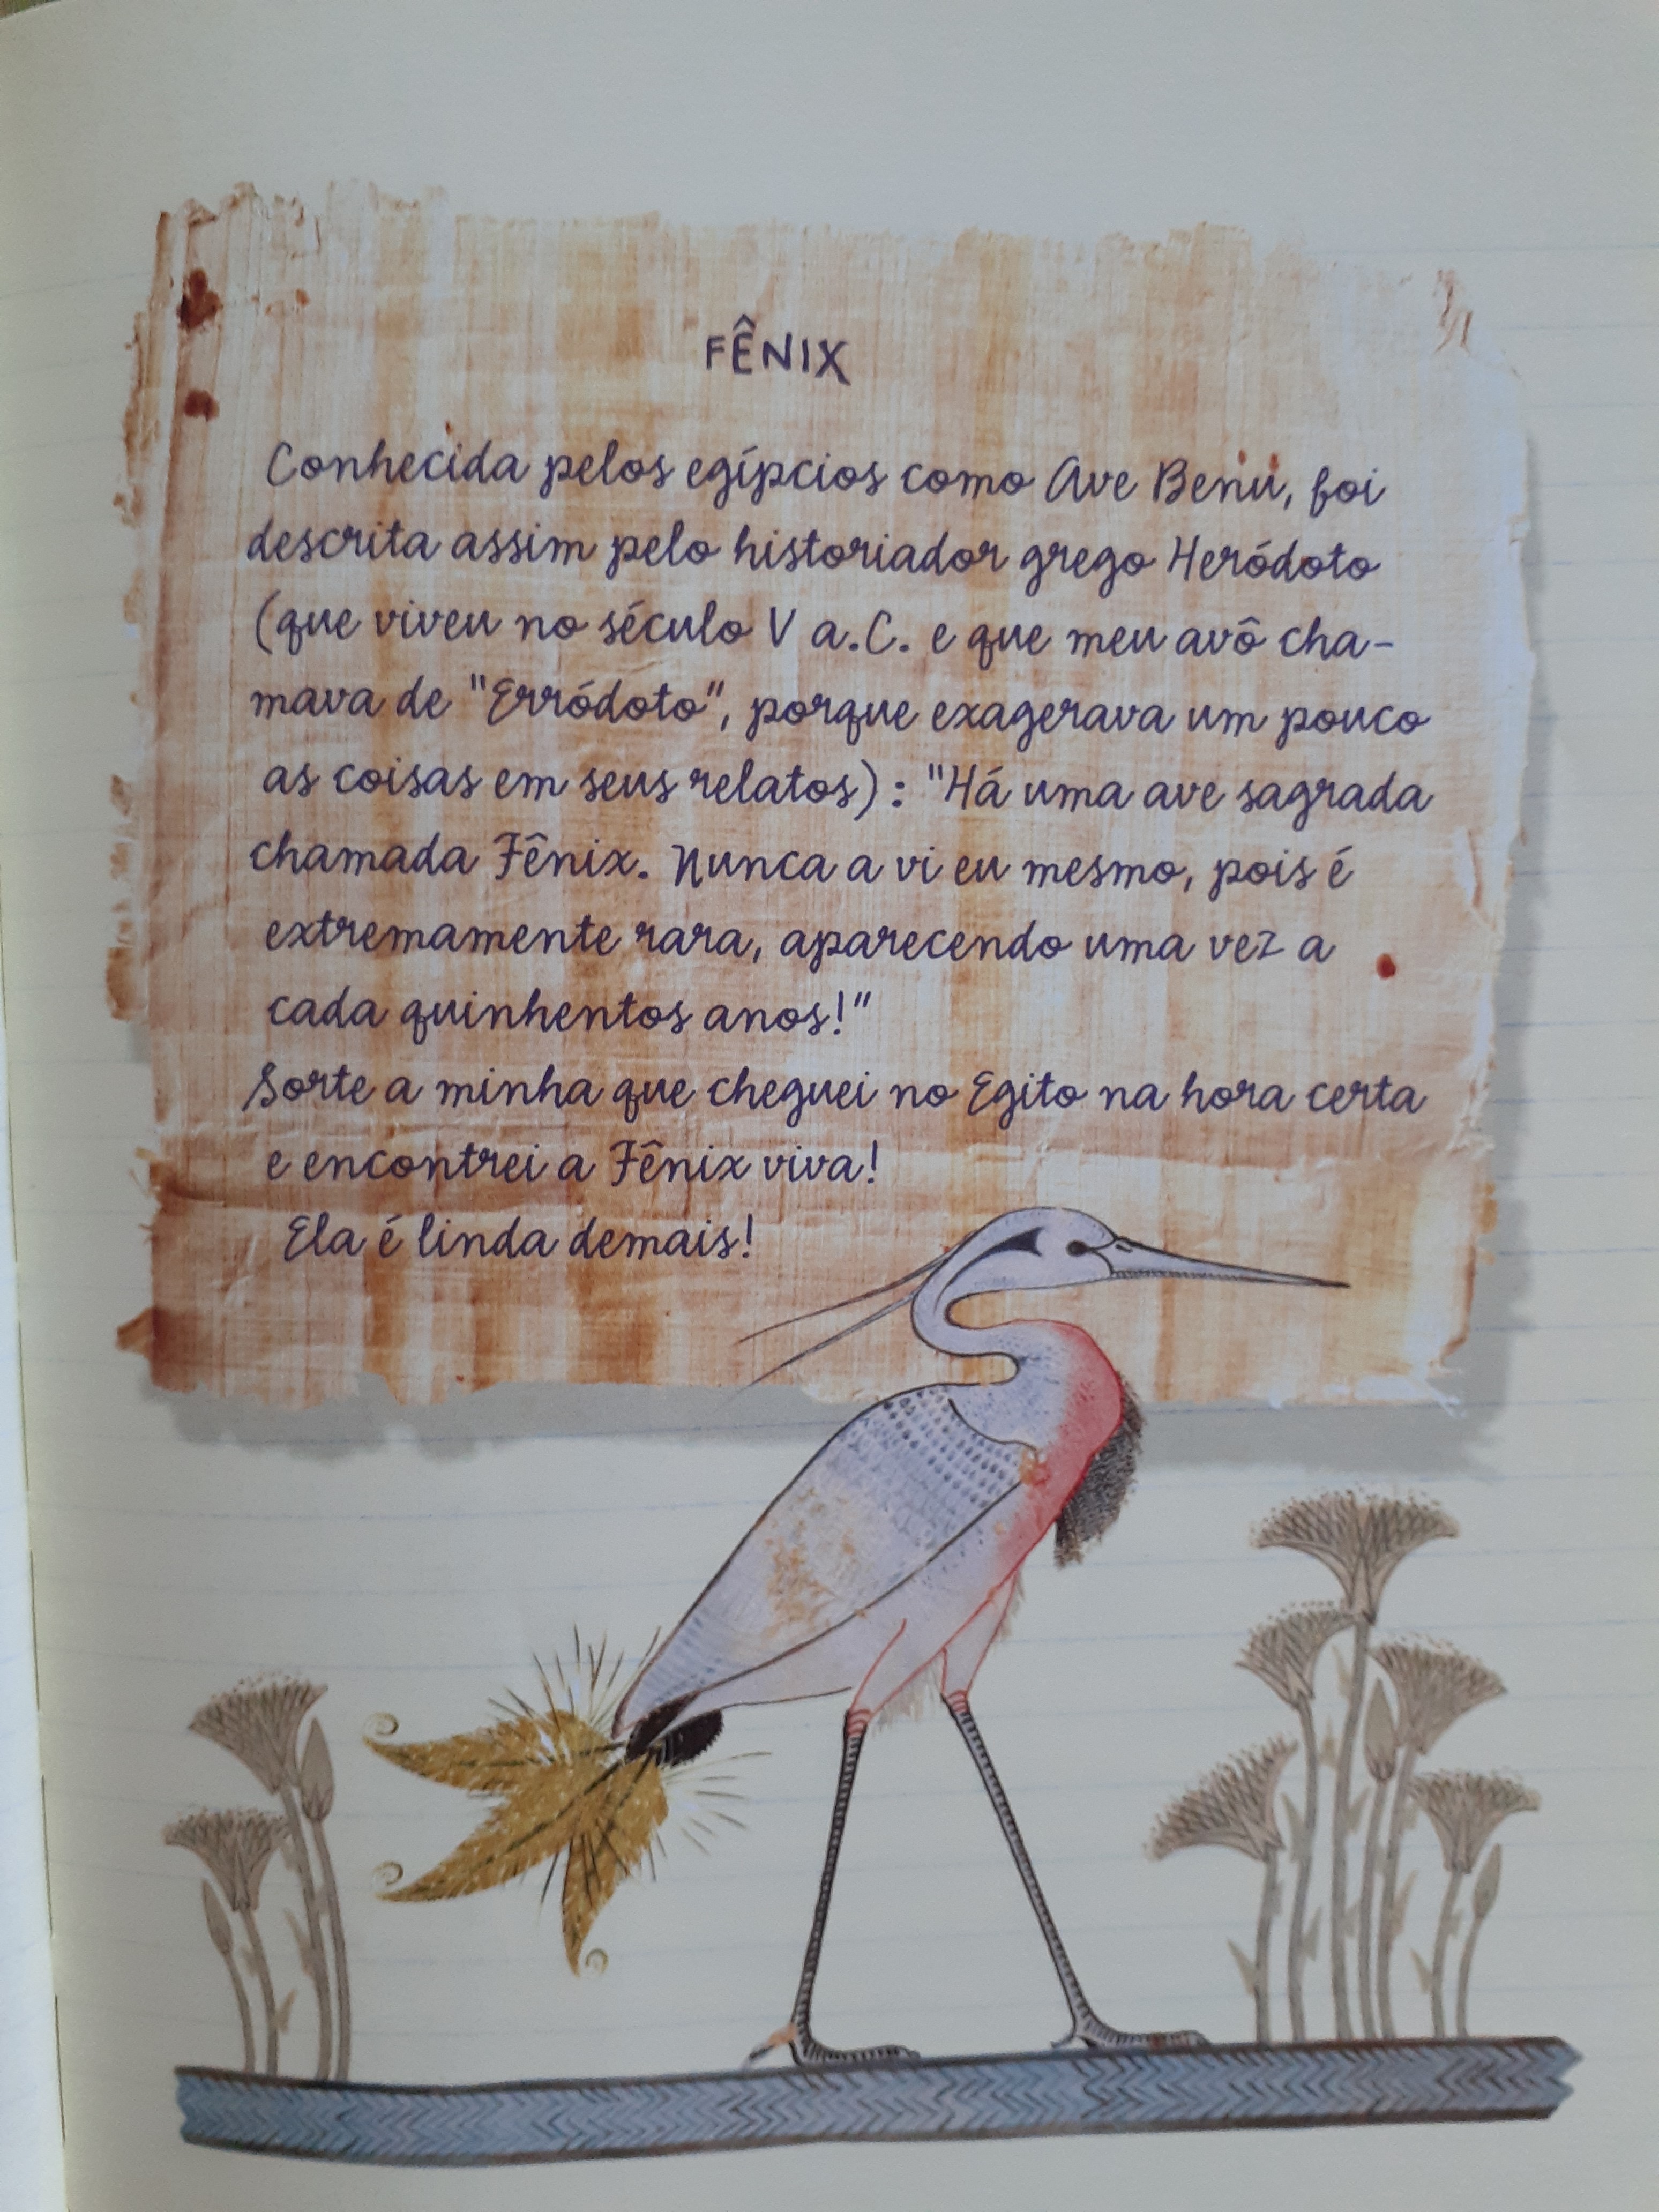 FÊNIX
Conhecida pelos egípcios como Ave Benu, foi
descrita assim pelo historiador grego Heródoto
(que viveu no século V a.C. e que meu avô cha-
mava de "Erródoto", porque exagerava um pouco
as coisas em seus relatos): "Há uma ave sagrada
chamada Fênix. Nunca a vi eu mesmo, pois é
extremamente rara, aparecendo uma vez a
cada quinhentos anos!"
Sorte a minha que cheguei no Egito na hora certa
e encontrei a Fênix viva!
Ela é linda demais!